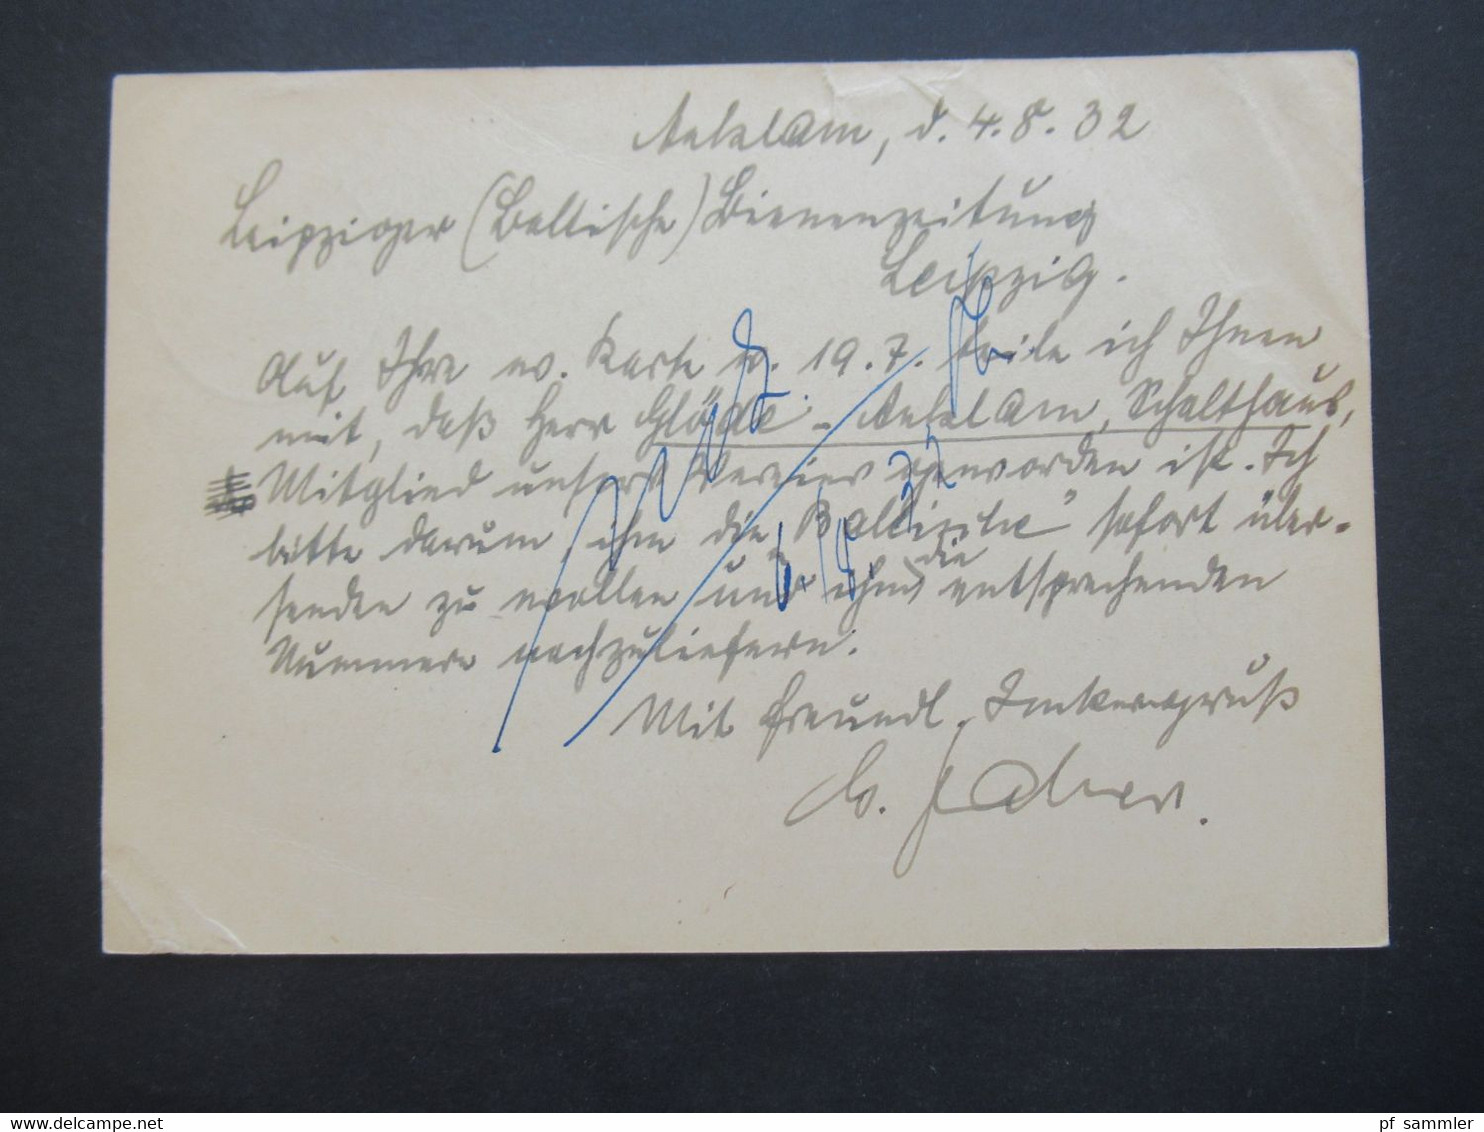 Anklam, d. 4.8.32
Leipziger (Baltische) Bienenzeitung
Leipzig.
Auf Ihre w. Karte v. 19.7. teile ich Ihnen
mit, daß Herr Gläde - Anklam, Schalthaus,
Mitglied unsers Vereins geworden ist. Ich
bitte darum, ihm die "Baltische" sofort über-
senden zu wollen und ihm die entsprechenden
Nummern nachzuliefern.
Mit freundl. Imkergruß
pf sammler